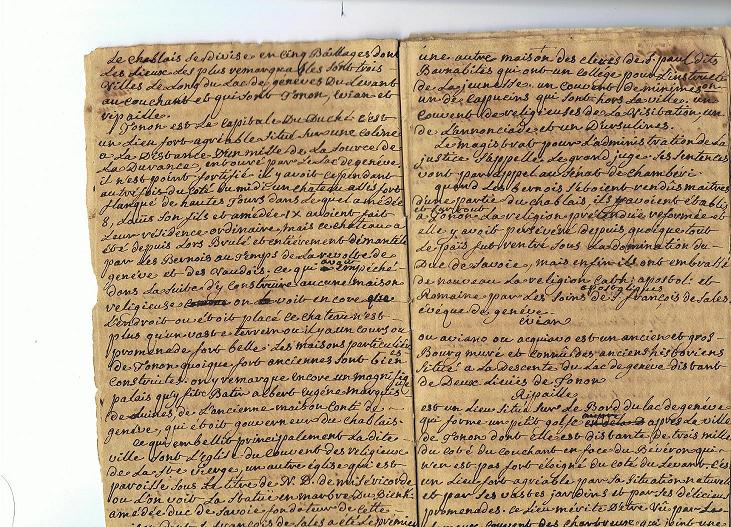 Le Chablais se divise en Cinq Bailliages dont
Les Lieux Les plus remarquables sont trois
Villes Le Long du Lac de geneve Du Levant
au Couchant et qui sont Tonon, Evian et
Ripaille.
Tonon est La Capitale Du Duché c'est
un Lieu fort agréable situé sur une coline
a La Distance D'un mille de La source de
La Durance, entouré par Le Lac de geneve,
il n'est point fortifié il y avoit cependant
autrefois du coté du midi un chateau assés fort
flanqué de hautes Tours dans Lequel amedée
8, Louis son fils et amedée IX avoient fait
Leur residence ordinaire, mais ce chateau a
été depuis Lors Brulé et entierement démantelé
par Les Bernois au Temps de La revolte de
geneve et des Vaudois. ce qui a empeché
dans La suite d'y construire aucune maison
religieuse on voit encore que
L'endroit ou étoit placé ce chateau n'est
plus qu'un vaste terrein ou il y a un cours ou
promenade fort belle. Les maisons particulieres
de Tonon quoique fort anciennes sont bien
construites. on y remarque encore un magnifique
palais qu'y fit Batir albert Eugène marquis
de Luines de L'ancienne maison Conti de
geneve, qui étoit gouverneur du chablais.
Ce qui embellit principalement La dite
ville sont L'Eglise du Couvent des religieux
de La Ste vierge, un autre église qui est
paroisse sous Le titre de N. D. de misericorde
ou L'on voit La statue en marbre Du Bienh.
amedée duc de Savoie fondateur de cette
François de Sales a été Le premier
une autre maison des clercs de S. paul dits
Barnabites qui ont un college pour L'instruction
de La jeunesse, un couvent de minimes
un de Capucins qui sont hors La ville, un
Couvent de religieuses de La Visitation un
de L'annonciade et un D'ursulines.
Le magistrat pour L'administration de La
justice s'appelle Le grand juge. ses sentences
vont par appel au Senat de Chamberi.
quand Les Bernois se Etoient rendus maitres
d'une partie du Chablais, ils avoient établi
et surtout
a Tonon La religion pretendue reformée et
elle y avoit persévéré depuis quoique tout
Le païs fut rentré sous La domination du
Duc de Savoie, mais enfin ils ont embrassé
de nouveau La religion Cath: apostol: et
apostoliques
Romaine par Les soins de S. françois de Sales
evêque de geneve.
Evian
ou aviano ou acquiavo est un ancien et gros
Bourg muré et connu des anciens historiens
situé a La descente du Lac de geneve distant
de Deux Lieües de Tonon.
Ripaille
est un Lieu situé sur Le Bord du lac de genève
qui forme un petit golfe après La ville
de Tonon dont elle est distante de trois mille
du coté du Couchant en face du Béveron qui
n'en est pas fort éloigné du coté du Levant. C'est
un Lieu fort agréable par sa situation naturelle
et par ses vastes jardins et par ses délicieuses
promenades. ce Lieu mérite D'etre vu par Les
couvent des chartreux qui ont une